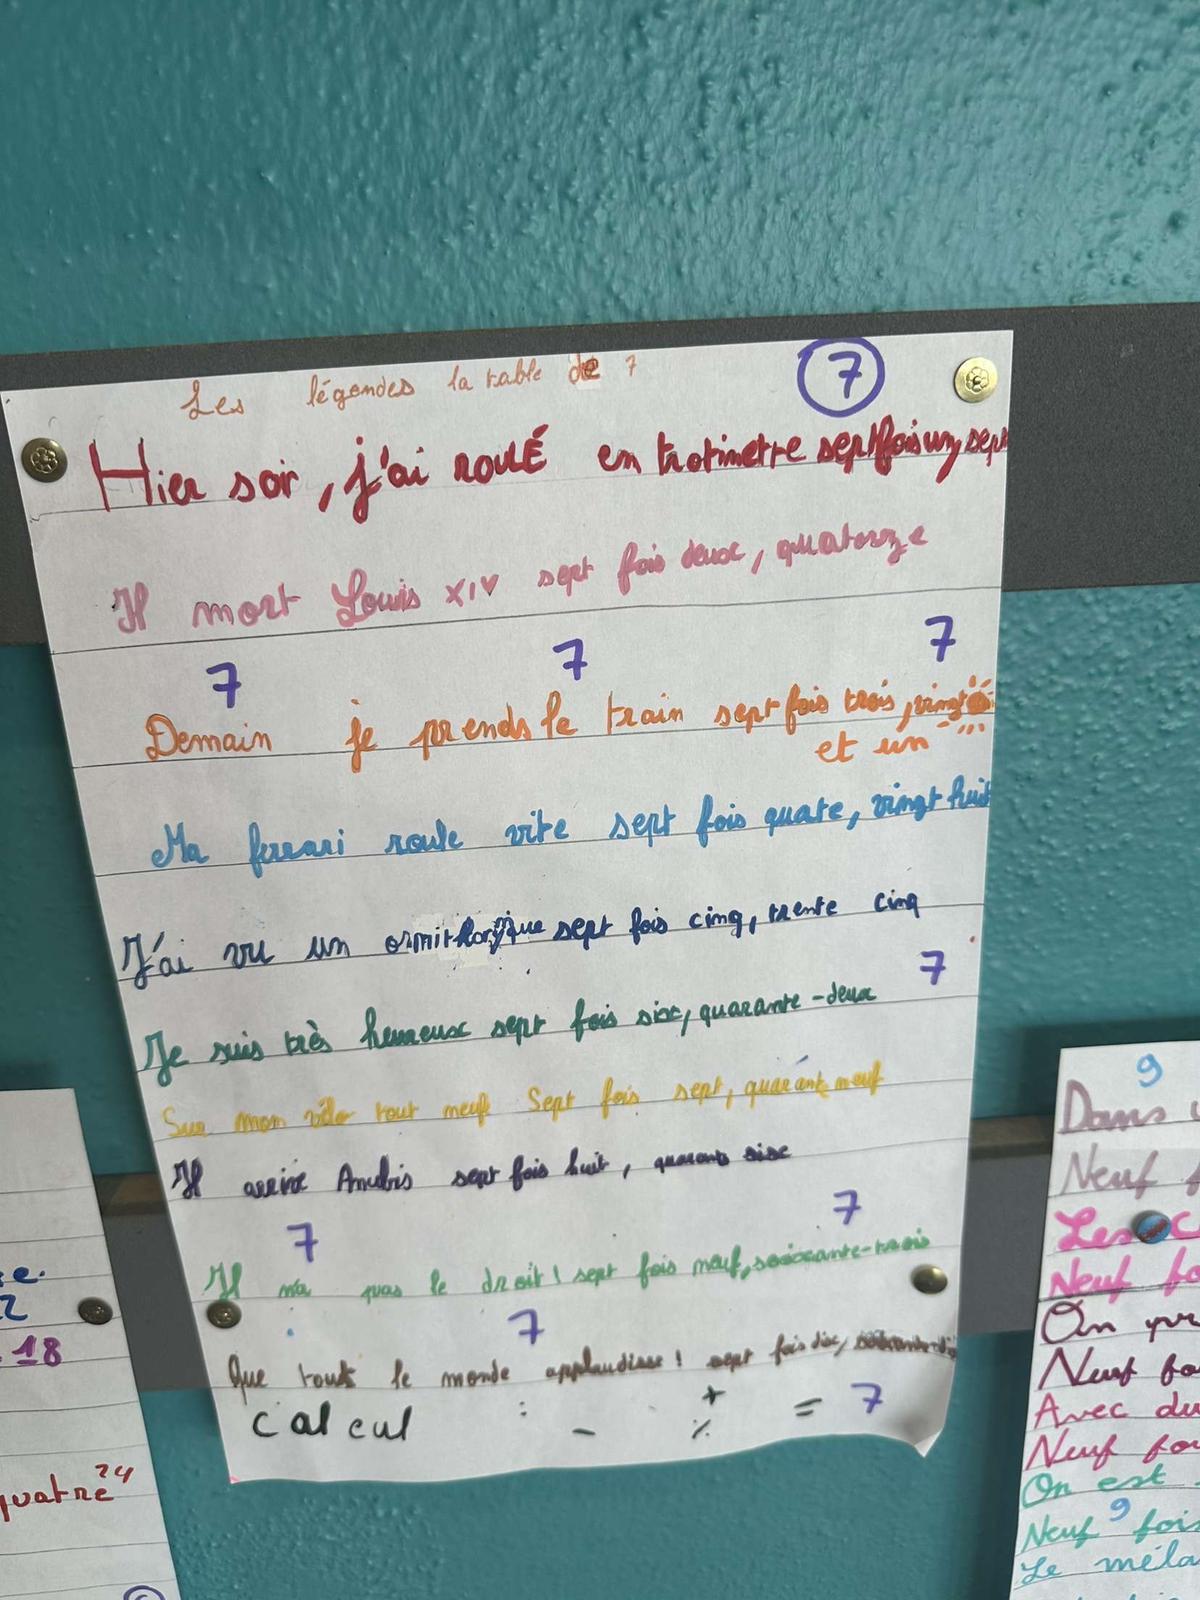 Les légendes la table de 7
7
Hier soir, j'ai roulÉ en trotinette sept fois un, sept
Il mort Louis XIV sept fois deux, quatorze
7 7 7
Demain je prends le train sept fois trois, vingt
et un
Ma ferrari roule vite sept fois quate, vingt huit
J'ai vu un sept fois cinq, trente cinq
7
Je suis très heureux sept fois six, quarante-deux
Sur mon vélo tout neuf Sept fois sept, quarante neuf
Il arrive Anubis sept fois huit,
7 7
Il n'a pas le droit! sept fois neuf, soixante-trois
7
Que tout le monde applaudisse! sept fois dix,
calcul : - + % = 7
e.
2
18
quatre 24
9
Dans
Neuf
Les
Neuf fo
On
Neuf fo
Avec du
Neuf fo
On est
9
Neuf fois
Le méla